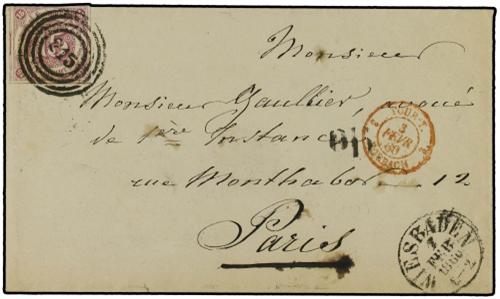 Monsieur
Monsieur Gaultier, avoué
de 1ère Instance
rue Monthabor. 12
Paris
215
TOUR-T.
3
FEVR
60
FORBACH
WIESBADEN
FEB
1860